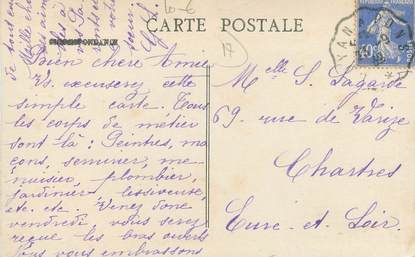 CARTE POSTALE
CORRESPONDANCE
Bien chère Amie
Vs. excuserez cette
simple carte. Tous
les corps de métier
sont là : Peintres, ma
çons, serrurier, me
nuisier, plombier,
jardinier lessiveuse,
etc. etc. Venez donc
vendredi vous serez
reçue les bras ouverts
Tous vous embrassons
Melle S. Lagarde
69, rue de Varize
Chartres
Eure-et-Loir